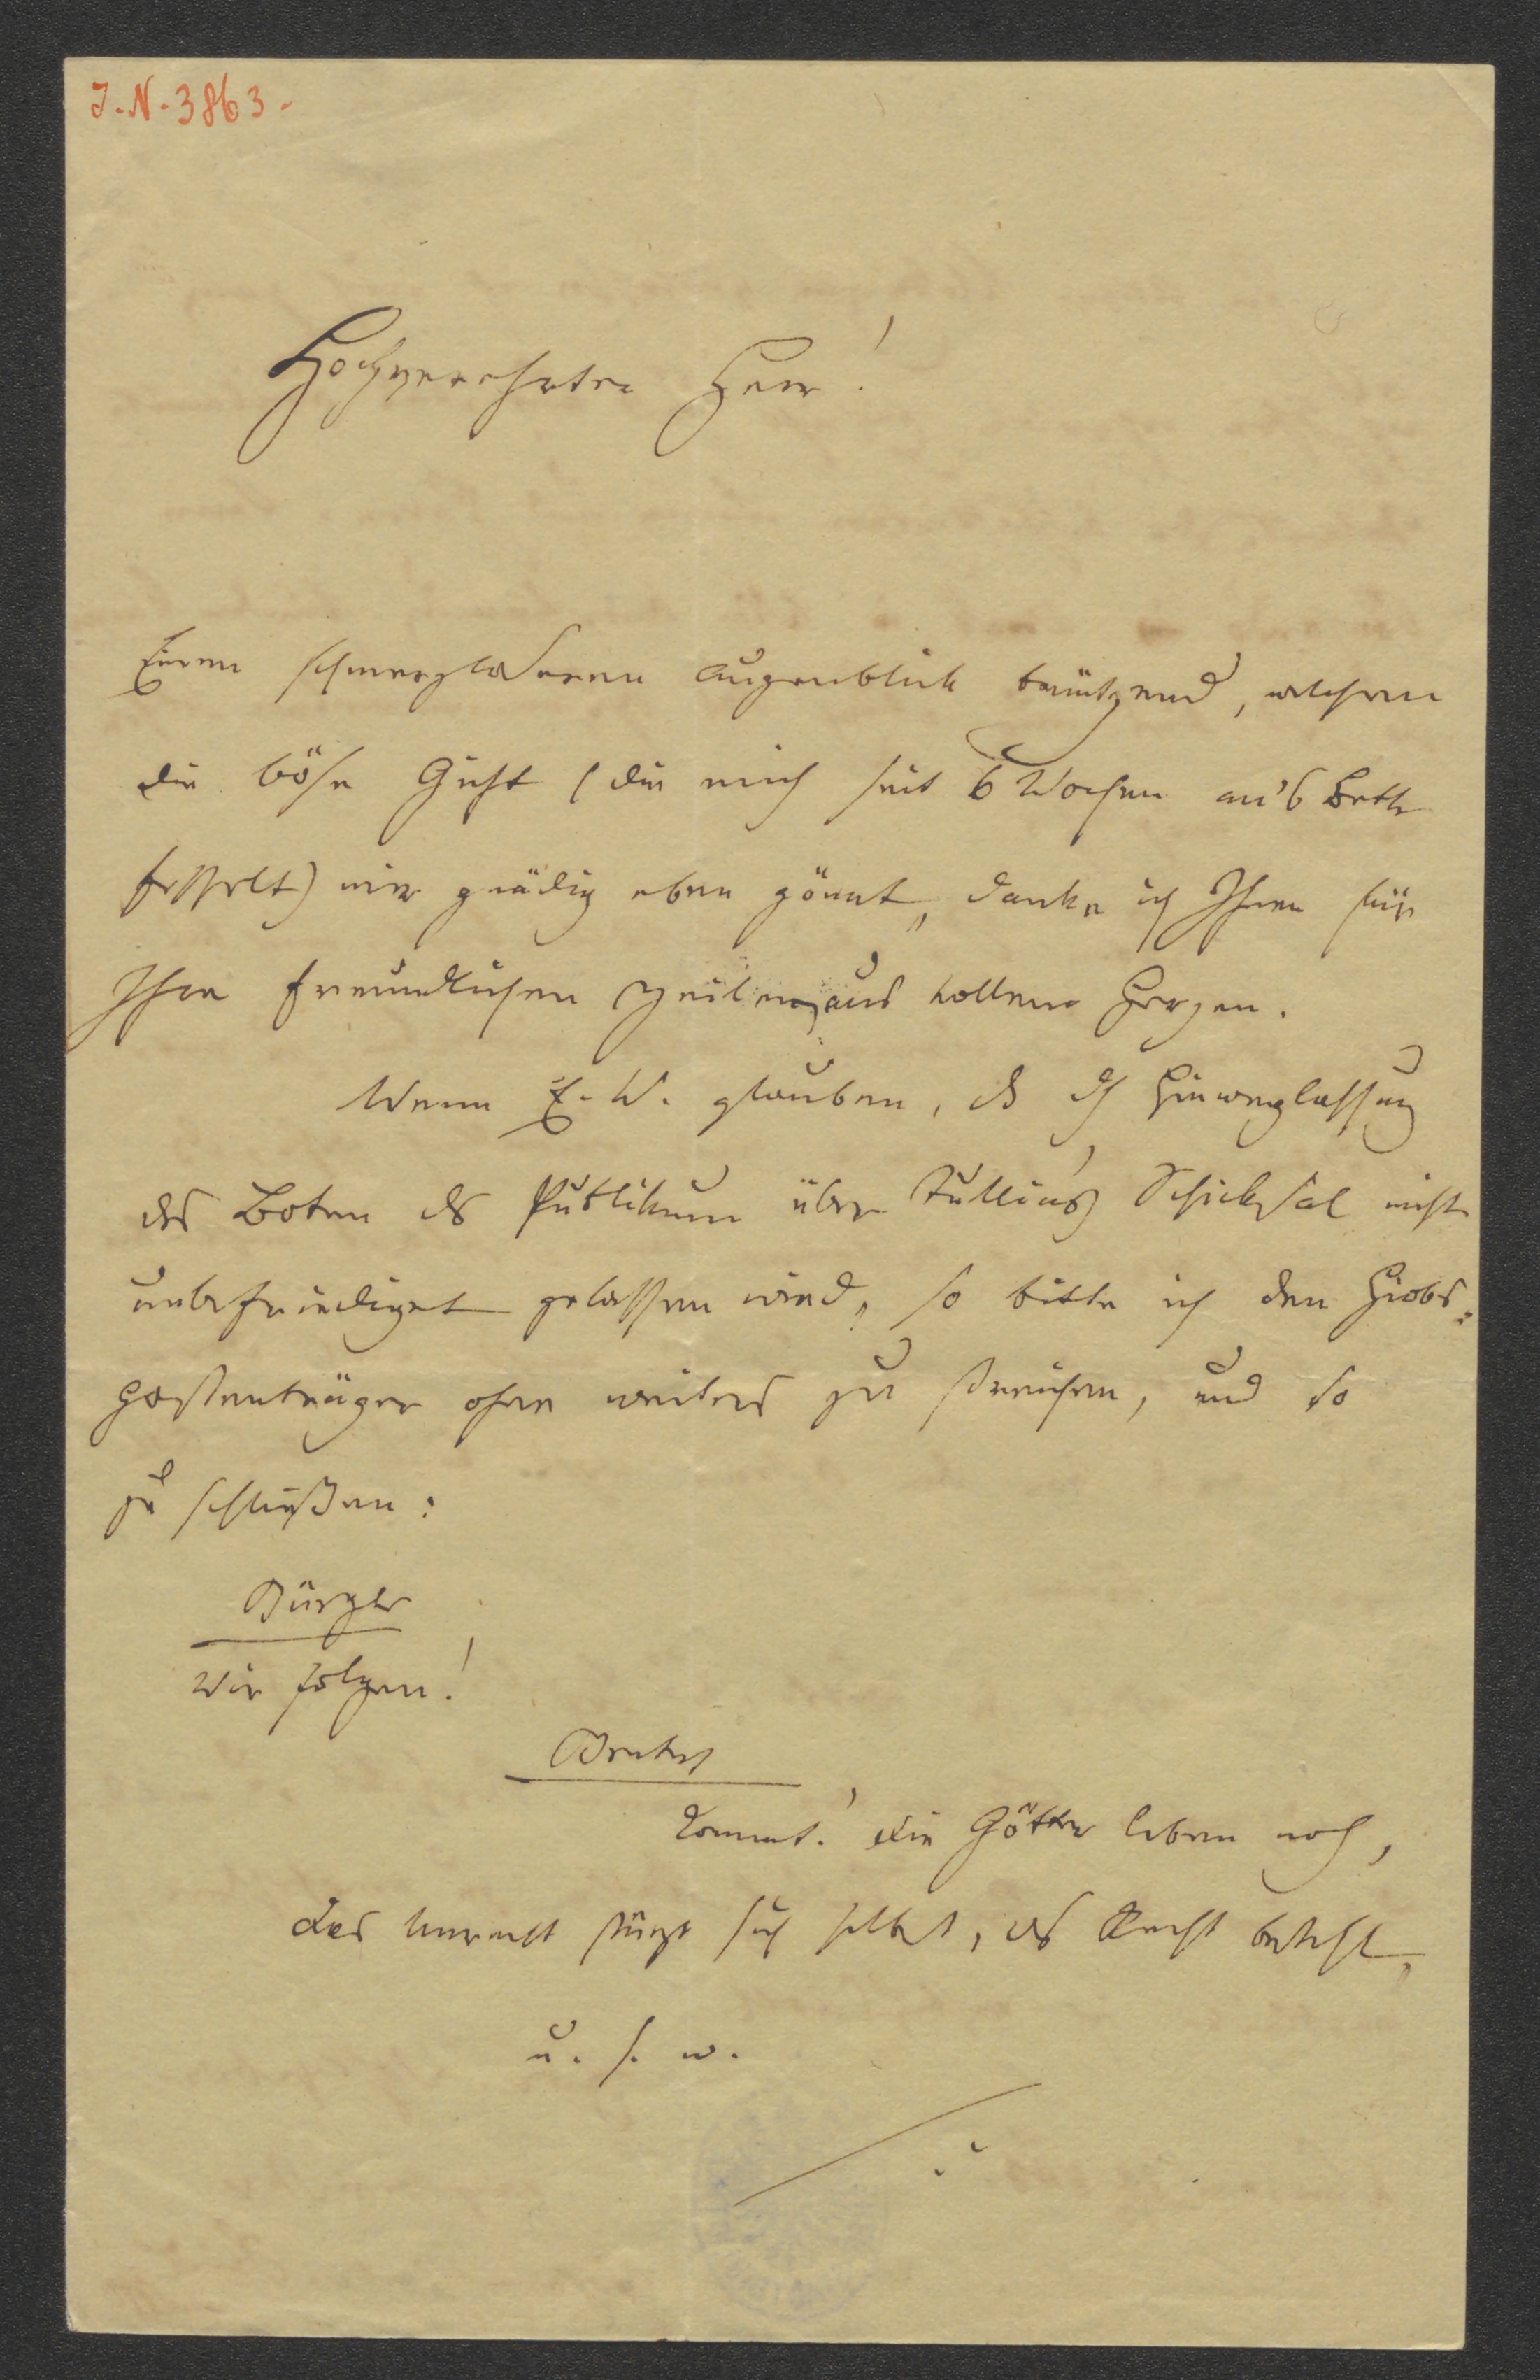 J.-N.-3863-
Hochverehrter Herr!
Einen schmerzloseren Augenblick benützend, welchen
die böse Gicht (die mich seit 6 Wochen an's Bett
fesselt) mir gnädig eben gönnt, danke ich Ihnen für
Ihre freundlichen Zeilen aus vollem Herzen.
Wenn E. W. glauben, ds dh Hinweglassung
des Boten ds Publikum über Tullius Schicksal nicht
unbefriediget gelassen wird, so bitte ich den Hiobs=
postenträger ohne weiters zu streichen, und so
zu schließen:
Bürger
Wir folgen!
Brutus
Kommt! die Götter leben noch,
das Unrecht stürzt sich selbst, ds Recht besteht,
u. s. w.